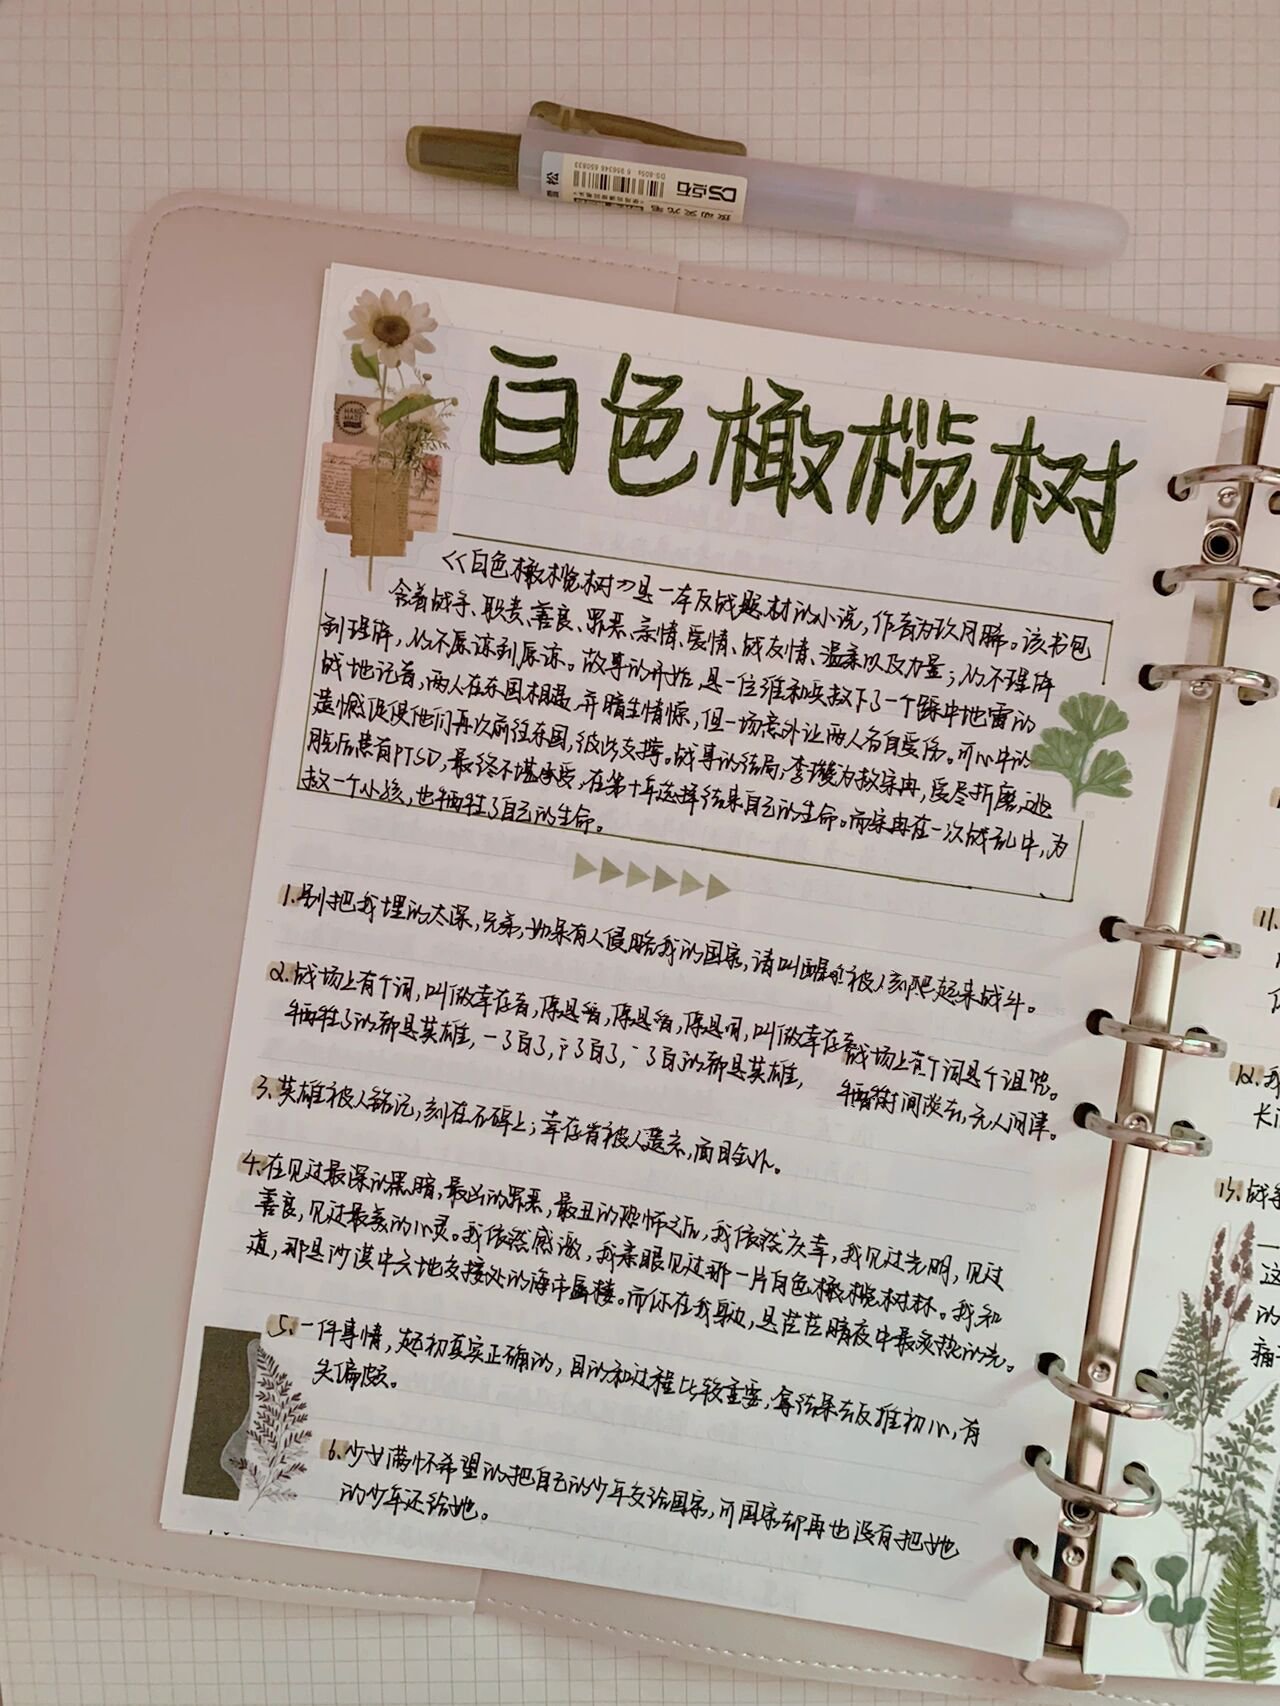 DS 点石
按动荧光笔
DS-805s 6 956346 650833
松
HAND MADE
白色橄榄树
《白色橄榄树》是一本反战题材的小说，作者为玖月晞。该书包
含着战争、职责、善良、罪恶、亲情、爱情、战友情、温柔以及力量；从不理解
到理解，从不原谅到原谅。故事的开始，是一位维和兵救下了一个踩中地雷的
战地记者，两人在东国相遇，并暗生情愫，但一场意外让两人各自受伤。可心中的
遗憾促使他们再次前往东国，彼此支撑。战争的结局，李瓒为救宋冉，受尽折磨，逃
脱后患有PTSD，最终不堪承受，在第十年选择结束自己的生命。而宋冉在一次战乱中，为
救一个小孩，也牺牲了自己的生命。
1.别把我埋的太深，兄弟，如果有人侵略我的国家，请叫醒 被人刻 爬起来战斗。
2.战场上有个词，叫做幸存者， 叫做幸存者 战场上有个词是个诅咒。
牺牲了的都是英雄，一了百了， 了百 的都是英雄， 牺 间淡去，无人问津。
3.英雄被人铭记，刻在石碑上；幸存者被人遗忘，面目全非。
4.在见过最深的黑暗，最凶的罪恶，最丑的恐怖之后，我依然庆幸，我见过光明，见过
善良，见过最美的心灵。我依然感激，我亲眼见过那一片白色橄榄树林。我知
道，那是沙漠中天地交接处的海市蜃楼。而你在我身边，是茫茫暗夜中最炙热的光。
5.一件事情，起初真实正确的，目的和过程比较重要，拿结果去反推初心，有
失偏颇。
6.少女满怀希望的把自己的少年交给国家，可国家却再也没有把她
的少年还给她。
11.
12.我
长
13.战争
一
这
的
痛